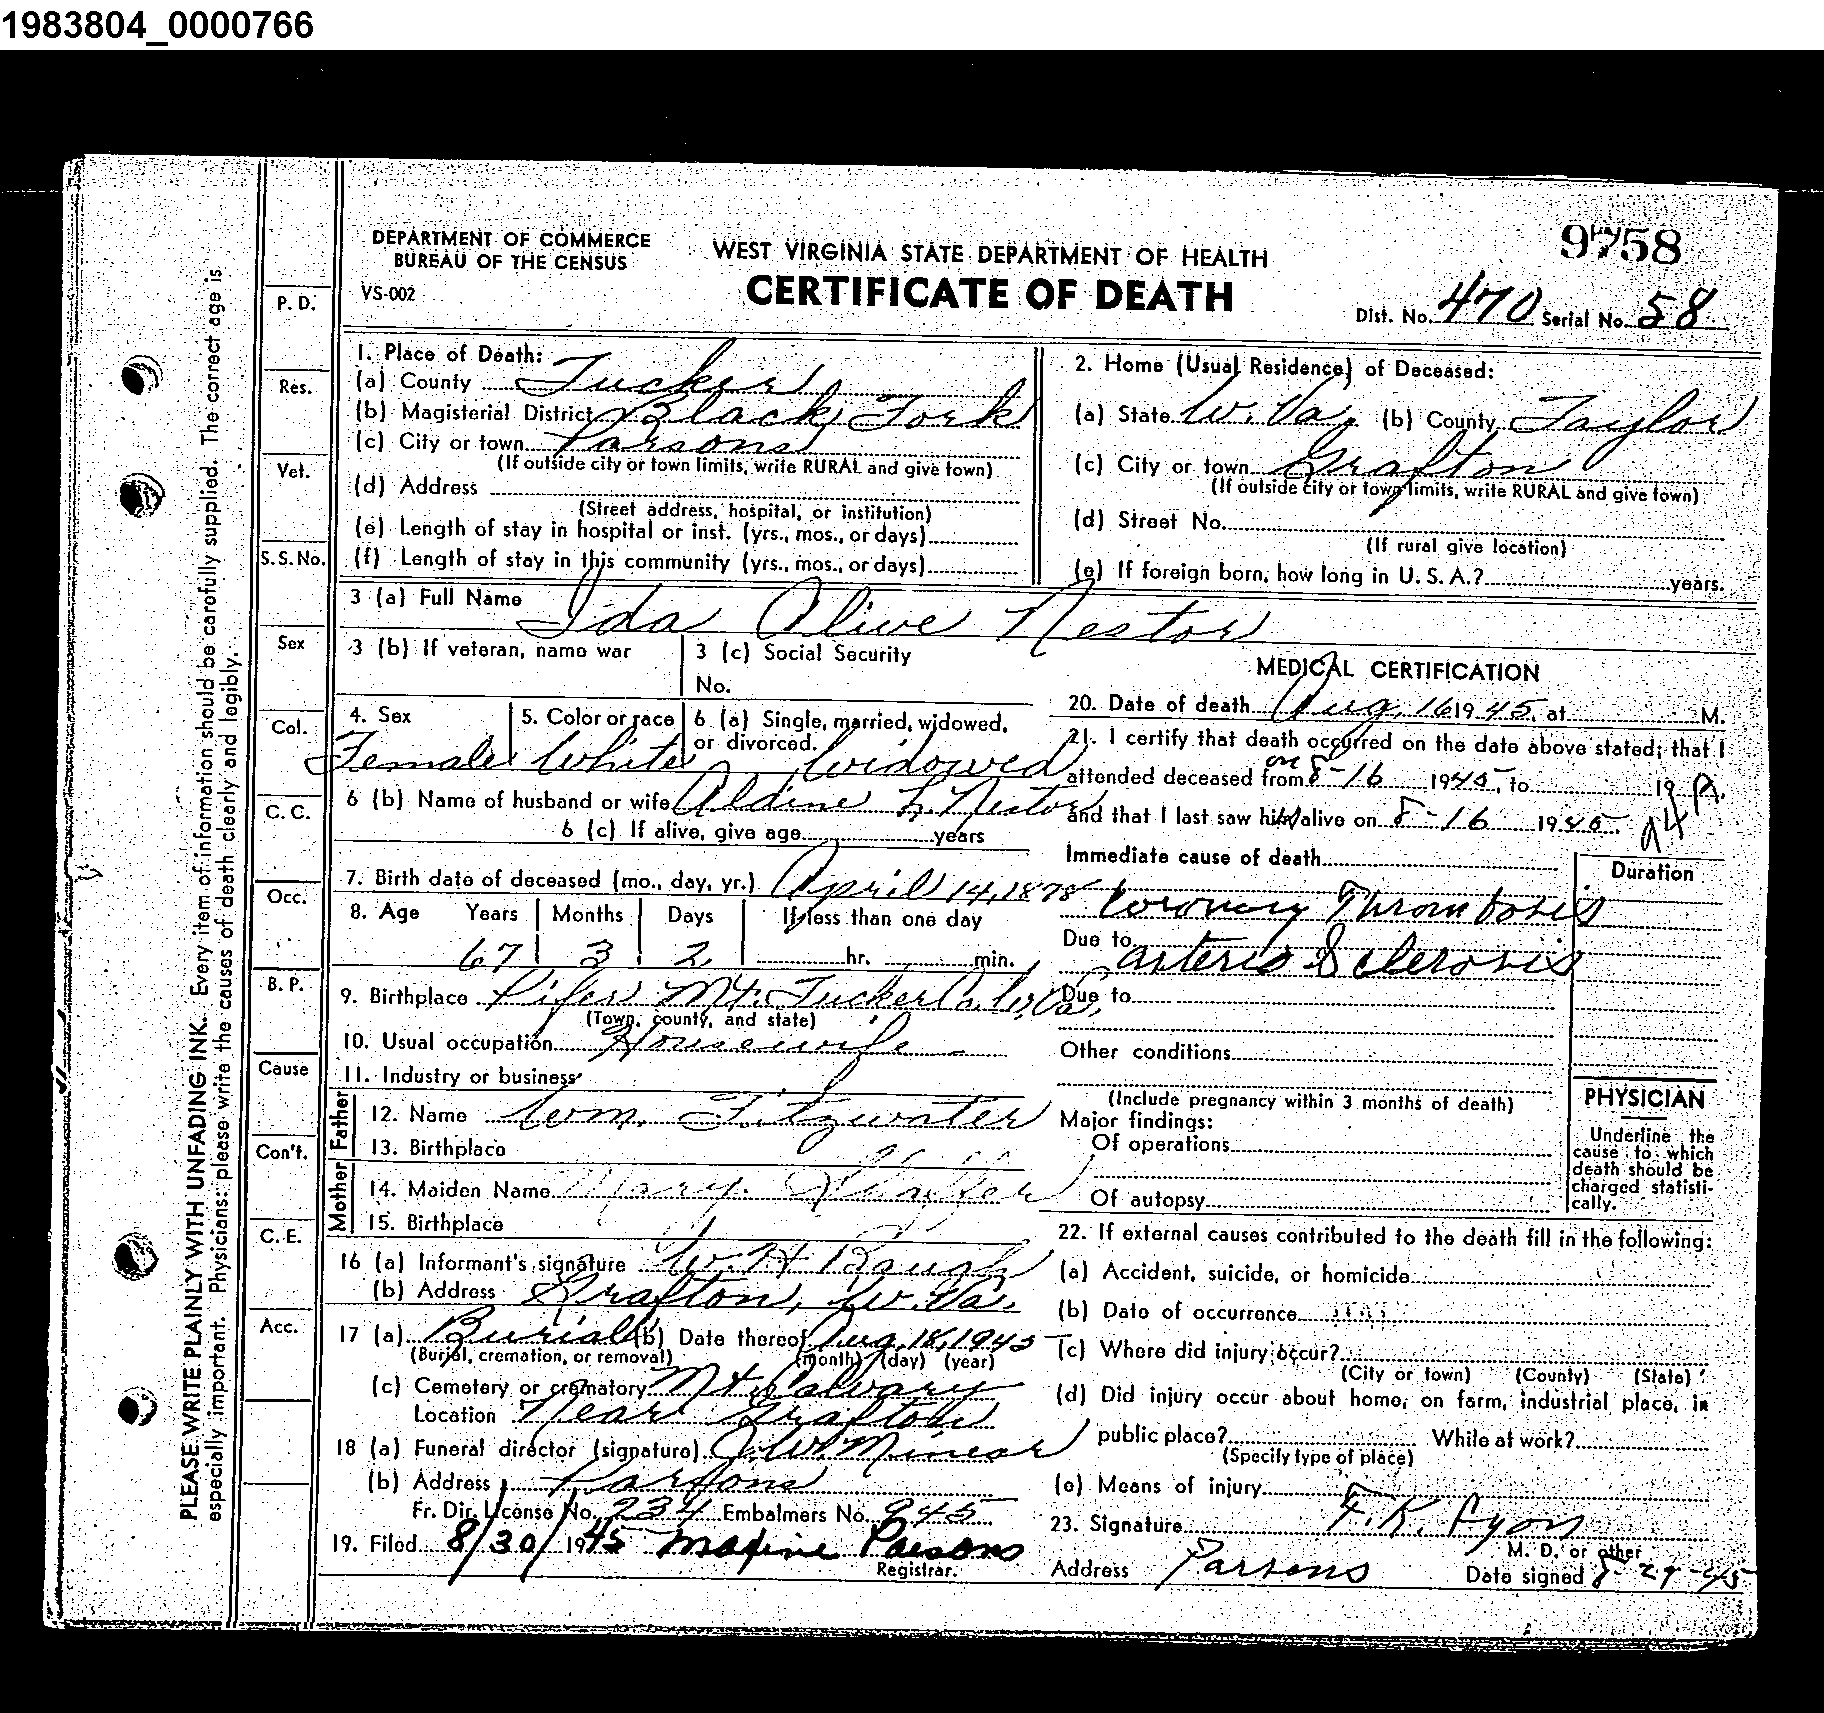 1983804_0000766
DEPARTMENT OF COMMERCE
BUREAU OF THE CENSUS
VS-002
WEST VIRGINIA STATE DEPARTMENT OF HEALTH
CERTIFICATE OF DEATH
9758
Dist. No. 470 Serial No. 58
PLEASE WRITE PLAINLY WITH UNFADING INK. Every item of information should be carefully supplied. The correct age is
especially important. Physicians: please write the causes of death clearly and legibly.
P. D.
Res.
Vet.
S. S. No.
Sex
Col.
C. C.
Occ.
B. P.
Cause
Con't.
C. E.
Acc.
1. Place of Death:
(a) County Tucker
(b) Magisterial District Black Fork
(c) City or town Parsons
(If outside city or town limits, write RURAL and give town)
(d) Address
(Street address, hospital, or institution)
(e) Length of stay in hospital or inst. (yrs., mos., or days)
(f) Length of stay in this community (yrs., mos., or days)
2. Home (Usual Residence) of Deceased:
(a) State W. Va. (b) County Taylor
(c) City or town Grafton
(If outside city or town limits, write RURAL and give town)
(d) Street No.
(If rural give location)
(e) If foreign born, how long in U. S. A.? years.
3 (a) Full Name Ida Olive Nestor
3 (b) If veteran, name war
3 (c) Social Security
No.
4. Sex
Female
5. Color or race
White
6 (a) Single, married, widowed,
or divorced.
Widowed
6 (b) Name of husband or wife Aldine L. Nestor
6 (c) If alive, give age years
7. Birth date of deceased (mo., day, yr.) April 14, 1878
8. Age Years Months Days If less than one day
67 3 2 hr. min.
9. Birthplace Pifer Mt. Tucker Co. W. Va.
(Town, county, and state)
10. Usual occupation Housewife
11. Industry or business
Father
12. Name Wm. Fitzwater
13. Birthplace
Mother
14. Maiden Name Mary Shaffer
15. Birthplace
16 (a) Informant's signature W. H. Baugh
(b) Address Grafton, W. Va.
17 (a) Burial (b) Date thereof Aug. 18, 1945
(Burial, cremation, or removal) (month) (day) (year)
(c) Cemetery or crematory Mt. Calvary
Location Near Grafton
18 (a) Funeral director (signature) J. W. Minear
(b) Address Parsons
Fr. Dir. License No. 234 Embalmers No. 945
19. Filed 8/30/1945 Maxine Parsons
Registrar.
MEDICAL CERTIFICATION
20. Date of death Aug. 16 1945, at M.
21. I certify that death occurred on the date above stated; that I
attended deceased from on 8-16 1945, to 19
and that I last saw h alive on 8-16 1945.
Immediate cause of death
Duration
Coronary Thrombosis
Due to
arterio Sclerosis
Due to
Other conditions
(Include pregnancy within 3 months of death)
Major findings:
Of operations
Of autopsy
PHYSICIAN
Underline the
cause to which
death should be
charged statisti-
cally.
22. If external causes contributed to the death fill in the following:
(a) Accident, suicide, or homicide
(b) Date of occurrence
(c) Where did injury occur?
(City or town) (County) (State)
(d) Did injury occur about home, on farm, industrial place, in
public place? While at work?
(Specify type of place)
(e) Means of injury
23. Signature F. K. Pyon
M. D. or other
Address Parsons Date signed 8-29-45